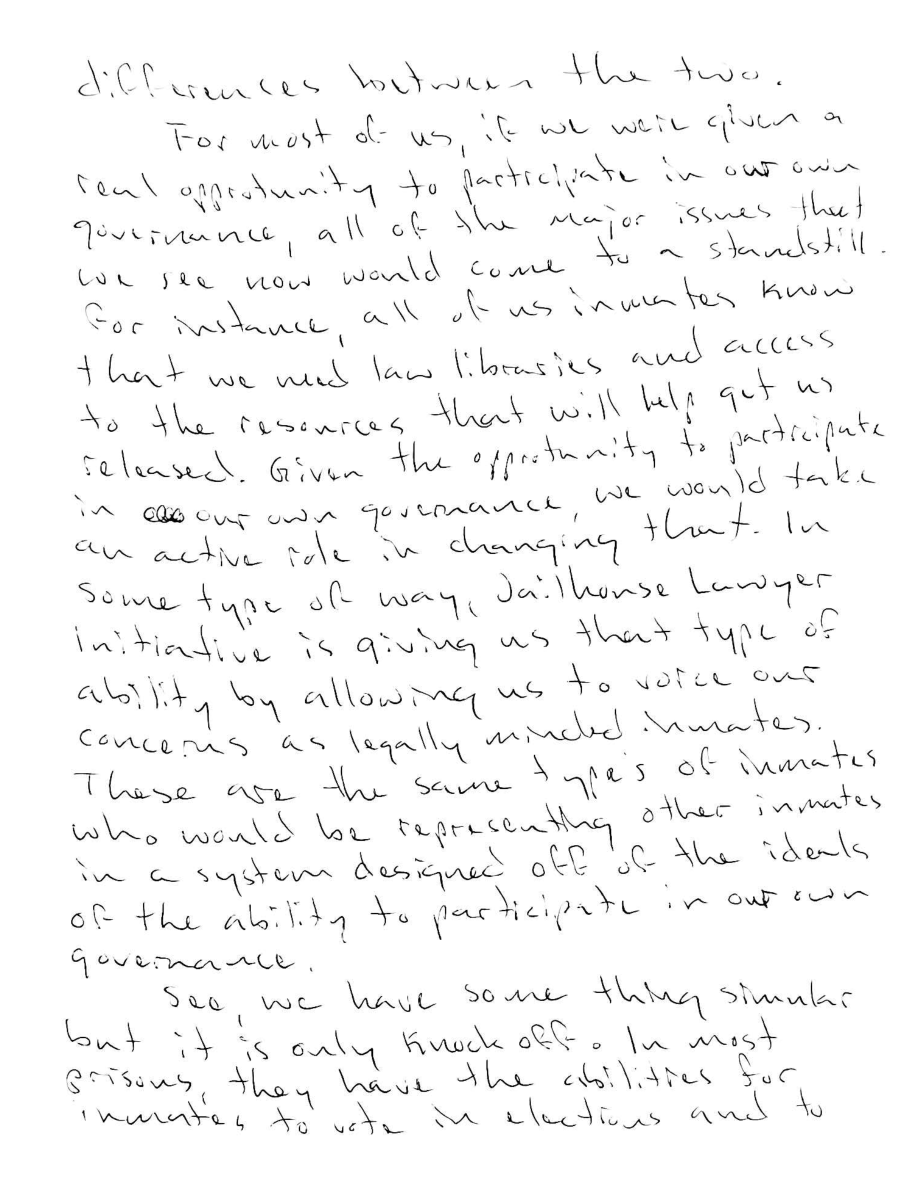 differences between the two.
For most of us, if we were given a
real opprotunity to participate in our own
governance, all of the major issues that
we see now would come to a standstill.
For instance, all of us inmates know
that we need law libraries and access
to the resources that will help get us
released. Given the opprotunity to participate
in our own governance, we would take
an active role in changing that. In
some type of way, Jailhouse Lawyer
initiative is giving us that type of
ability by allowing us to voice our
concerns as legally minded inmates.
These are the same type's of inmates
who would be representing other inmates
in a system designed off of the ideals
of the ability to participate in our own
governance.
See, we have some thing simular
but it is only knock off. In most
prisons, they have the abilities for
inmates to vote in elections and to